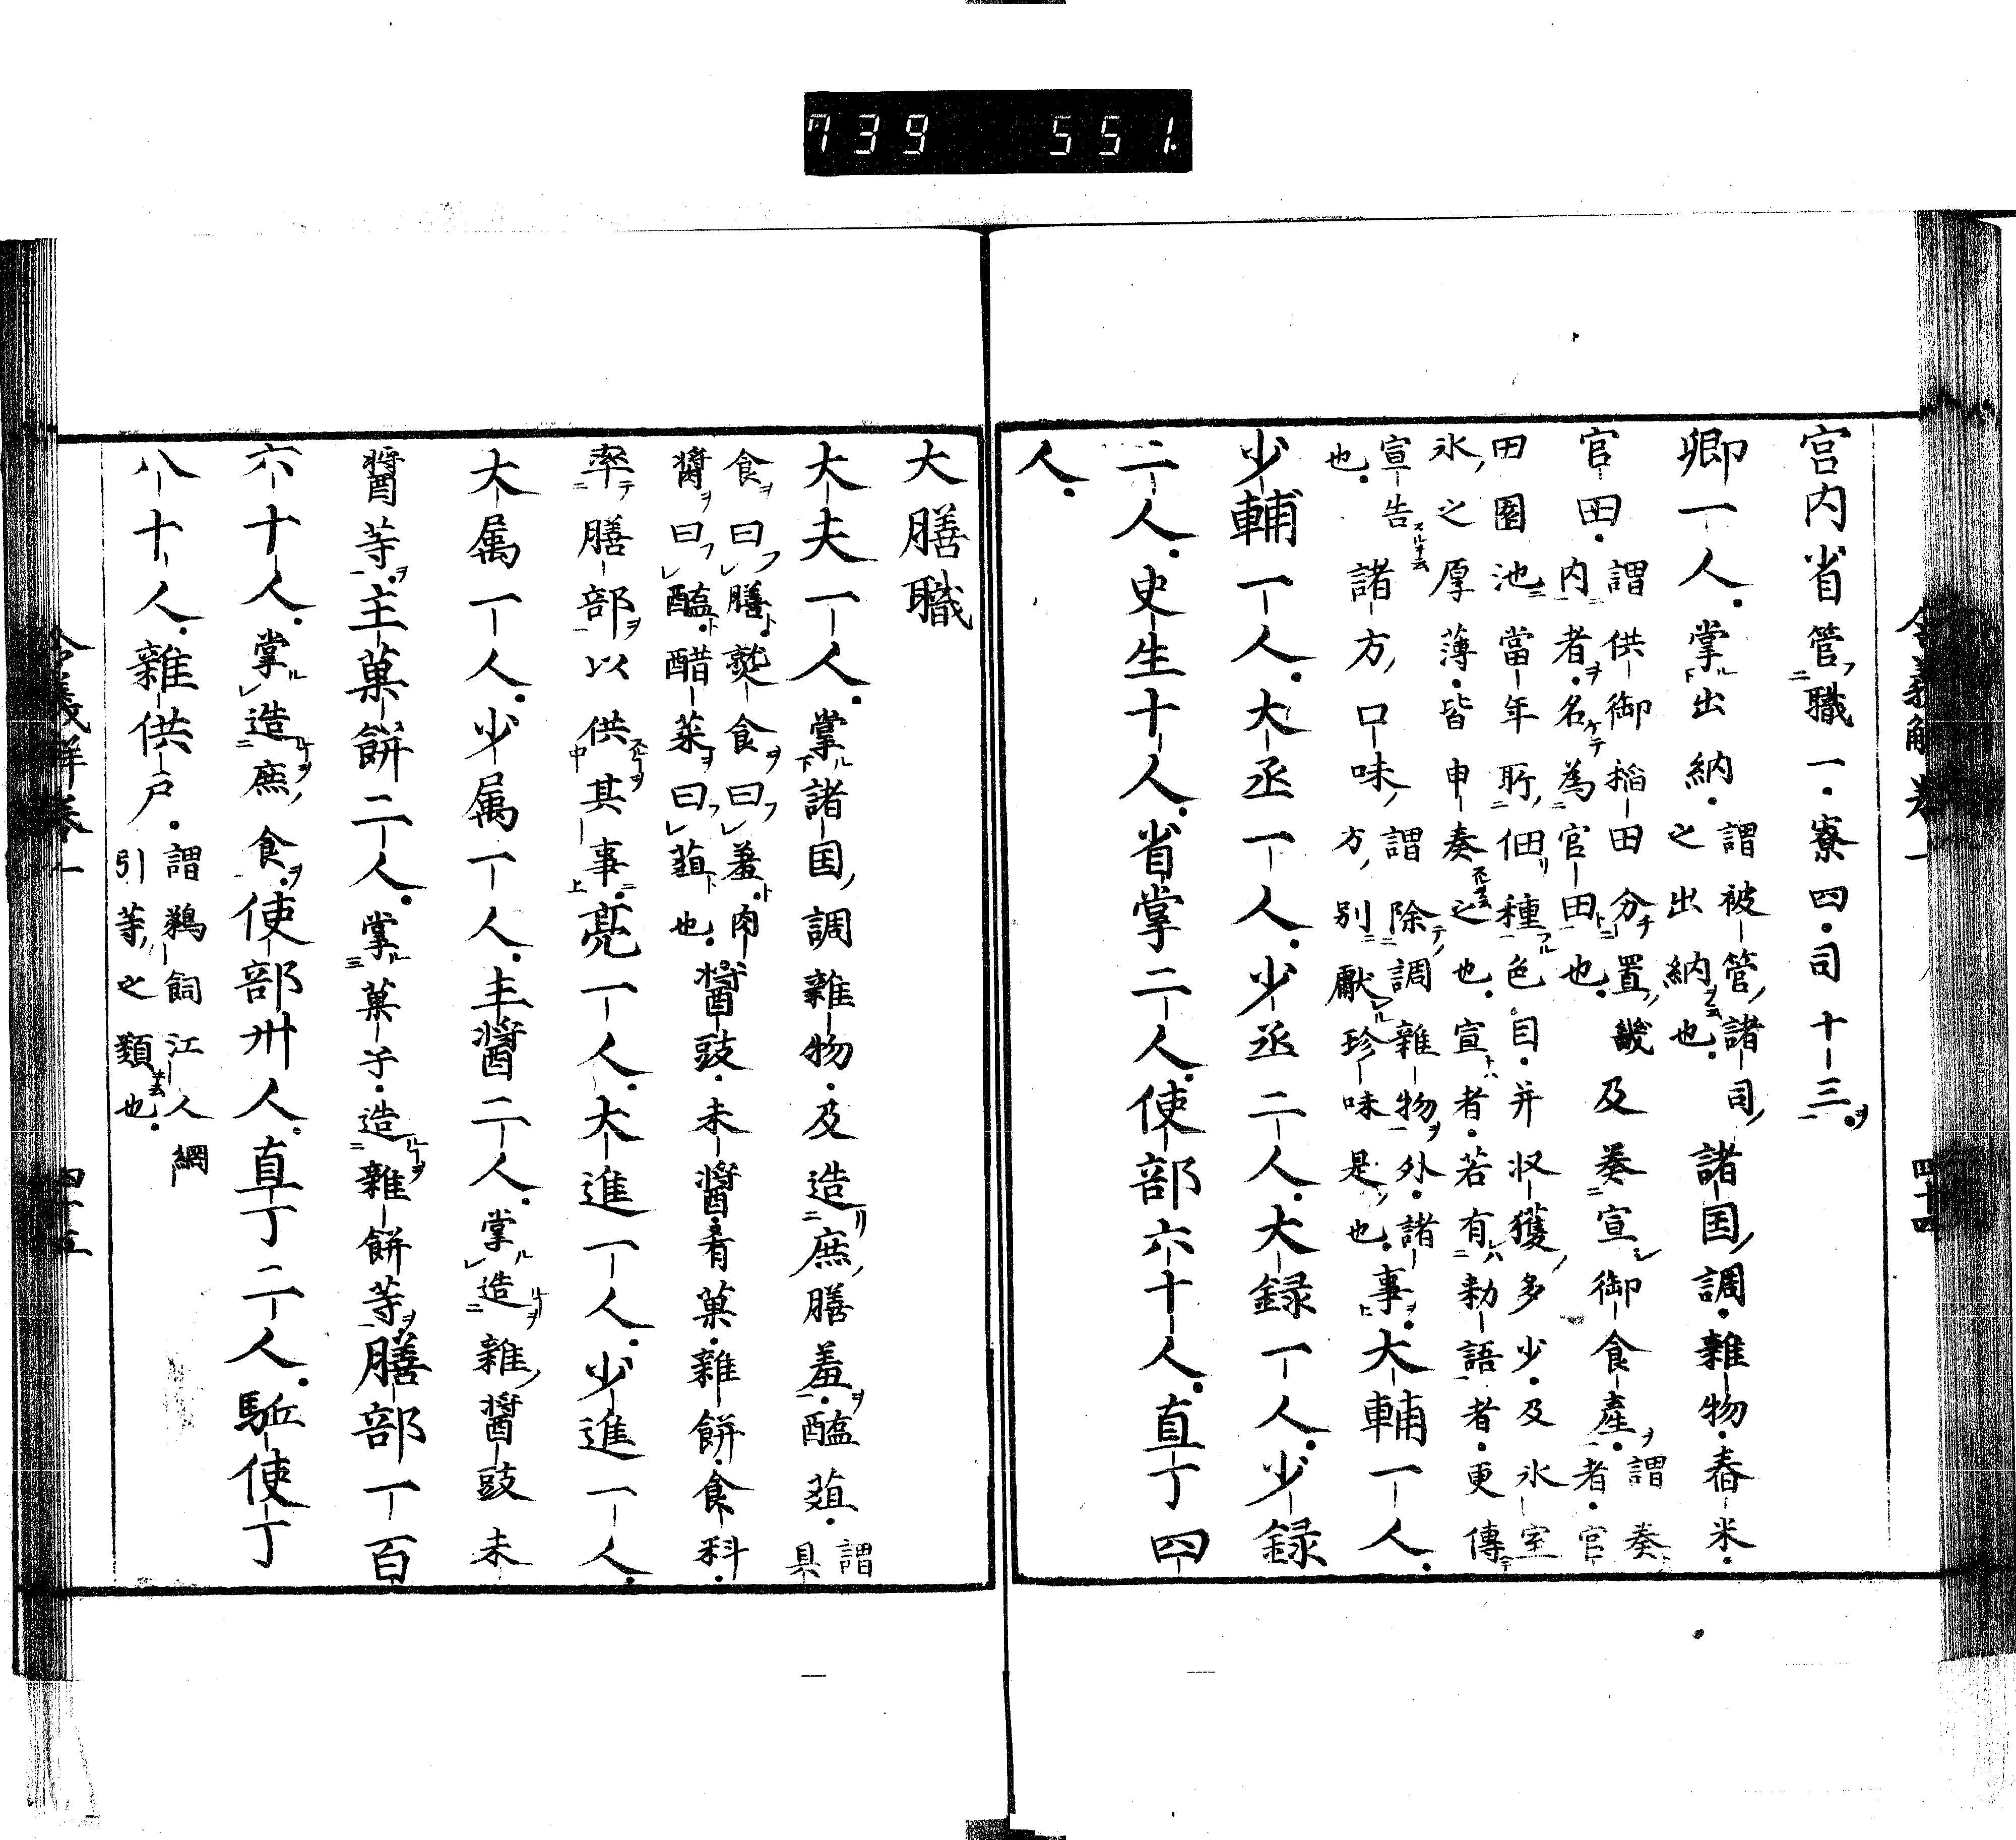 739 551.
令義解巻一 四十四
宮内省管職一・寮四・司十三
卿一人。掌出納・謂被管諸司之出納也。諸国調・雜物・舂米・
官田・謂供御稲田分置畿内者名為官田也。及奏宣御食産・謂奏者・官
田園池當年所佃種色目・并収獲多少・及氷室
氷之厚薄・皆申奏之也。宣者・若有勅語者・更傳
宣告也。諸方口味謂除調雜物外・諸方別獻珍味是也。事。大輔一人。
少輔一人。大丞一人。少丞二人。大録一人。少録
二人。史生十人。省掌二人。使部六十人。直丁四
人。
大膳職
大夫一人。掌諸国調雜物・及造庶膳羞・醢葅・謂具
食曰膳・熟食曰羞・肉醤曰醢・醋菜曰葅也。醤豉・未醤・肴菓・雜餅・食料・
率膳部以供其事。亮一人。大進一人。少進一人。
大属一人。少属一人。主醤二人。掌造雜醤豉未
醤等。主菓餅二人。掌菓子・造雜餅等。膳部一百
六十人。掌造庶食。使部卅人。直丁二人。駈使丁
八十人。雜供戸。謂鵜飼江人網引等之類也。
令義解巻一 四十五